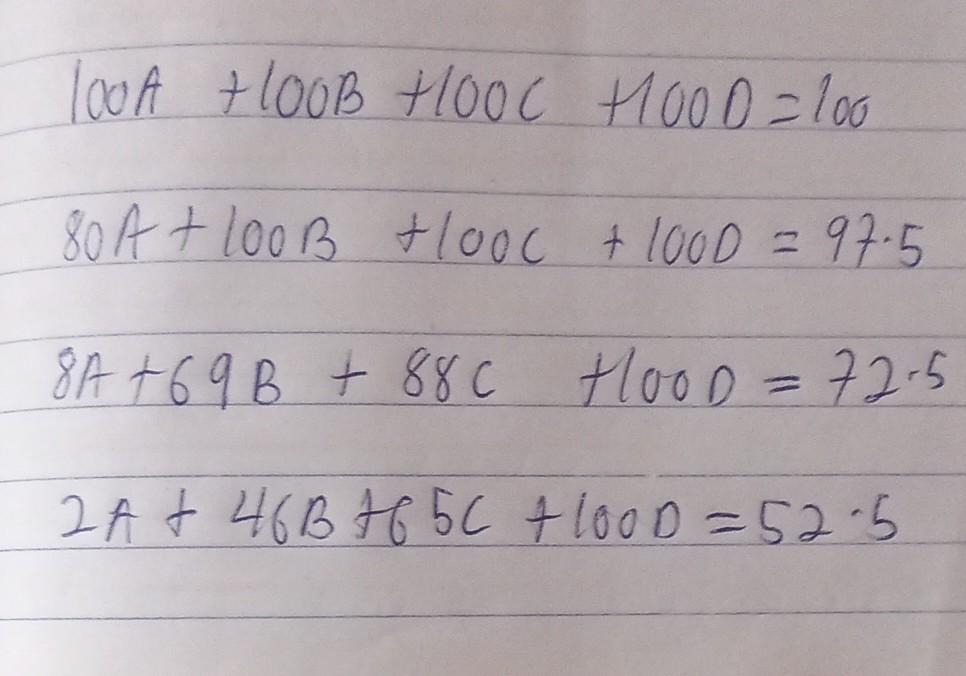 100A +100B +100C +100D = 100
80A + 100B +100C + 100D = 97.5
8A + 69B + 88C +100D = 72.5
2A + 46B + 65C + 100D = 52.5